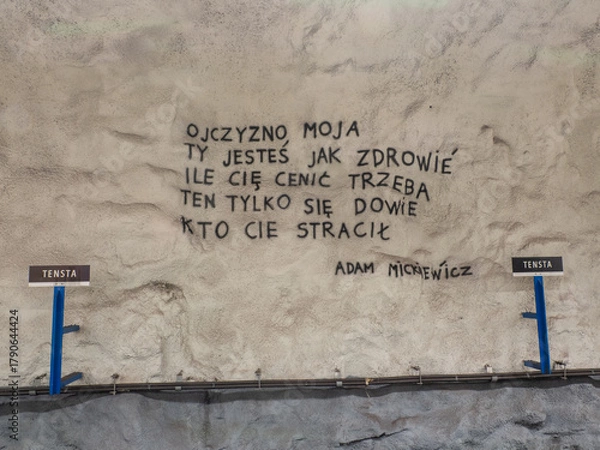 OJCZYZNO MOJA
TY JESTEŚ JAK ZDROWIE
ILE CIĘ CENIĆ TRZEBA
TEN TYLKO SIĘ DOWIE
KTO CIE STRACIŁ
ADAM MICKIEWICZ
TENSTA
TENSTA
Adobe Stock | #1790644424